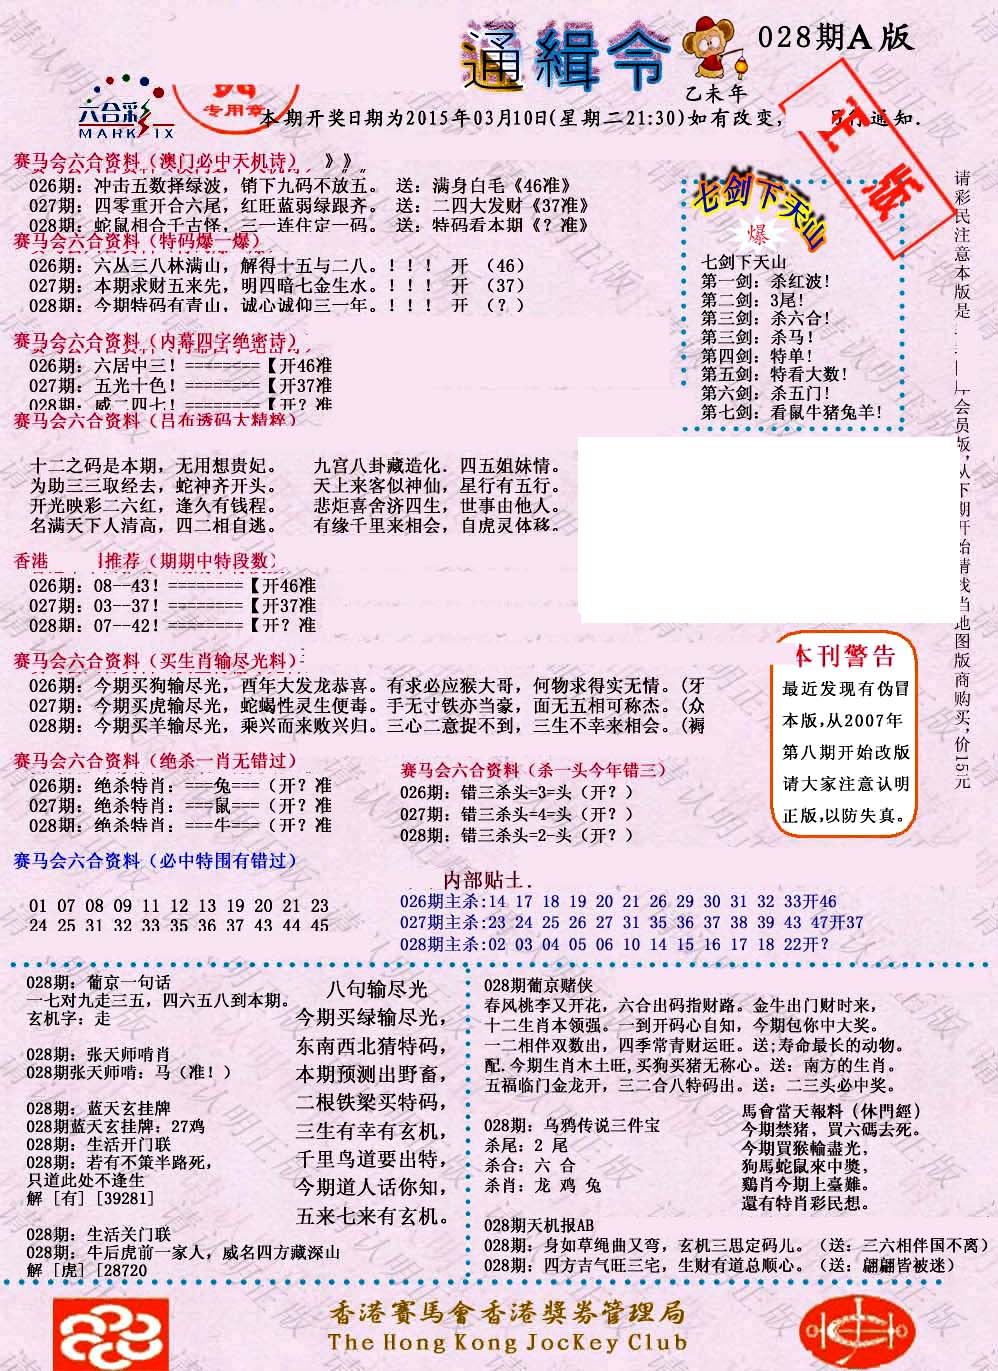 通緝令
028期A版
乙未年
六合彩
MARK SIX
专用章
本期开奖日期为2015年03月10日(星期二21:30)如有改变，
通知.
赛马会六合资料（澳门必中天机诗） 》》
026期：冲击五数择绿波，销下九码不放五。 送：满身白毛《46准》
027期：四零重开合六尾，红旺蓝弱绿跟齐。 送：二四大发财《37准》
028期：蛇鼠相合千古怪，三一连住定一码。 送：特码看本期《？准》
赛马会六合资料（特码爆一爆）
026期：六丛三八林满山，解得十五与二八。！！！ 开 （46）
027期：本期求财五来先，明四暗七金生水。！！！ 开 （37）
028期：今期特码有青山，诚心诚仰三一年。！！！ 开 （？）
赛马会六合资料（内幕四字绝密诗）
026期：六居中三！========【开46准
027期：五光十色！========【开37准
028期：威二四七！========【开？准
赛马会六合资料（吕布透码大精粹）
十二之码是本期，无用想贵妃。 九宫八卦藏造化．四五姐妹情。
为助三三取经去，蛇神齐开头。 天上来客似神仙，星行有五行。
开光映彩二六红，逢久有钱程。 悲炬喜舍济四生，世事由他人。
名满天下人清高，四二相自逃。 有缘千里来相会，自虎灵体移。
七剑下天山
爆
七剑下天山
第一剑：杀红波！
第二剑：3尾！
第三剑：杀六合！
第三剑：杀马！
第四剑：特单！
第五剑：特看大数！
第六剑：杀五门！
第七剑：看鼠牛猪兔羊！
请彩民注意本版是
会员版，从下期开始请找当地图版商购买，价15元
香港
推荐（期期中特段数）
026期：08--43！========【开46准
027期：03--37！========【开37准
028期：07--42！========【开？准
赛马会六合资料（买生肖输尽光料）
026期：今期买狗输尽光，酉年大发龙恭喜。有求必应猴大哥，何物求得实无情。（牙
027期：今期买虎输尽光，蛇蝎性灵生便毒。手无寸铁亦当豪，面无五相可称杰。（众
028期：今期买羊输尽光，乘兴而来败兴归。三心二意捉不到，三生不幸来相会。（褥
本刊警告
最近发现有伪冒
本版，从2007年
第八期开始改版
请大家注意认明
正版，以防失真。
赛马会六合资料（绝杀一肖无错过）
026期：绝杀特肖：===兔===（开？准
027期：绝杀特肖：===鼠===（开？准
028期：绝杀特肖：===牛===（开？准
赛马会六合资料（杀一头今年错三）
026期：错三杀头=3=头（开？）
027期：错三杀头=4=头（开？）
028期：错三杀头=2-头（开？）
赛马会六合资料（必中特围有错过）
01 07 08 09 11 12 13 19 20 21 23
24 25 31 32 33 35 36 37 43 44 45
内部贴士．
026期主杀:14 17 18 19 20 21 26 29 30 31 32 33开46
027期主杀:23 24 25 26 27 31 35 36 37 38 39 43 47开37
028期主杀:02 03 04 05 06 10 14 15 16 17 18 22开？
028期：葡京一句话
一七对九走三五，四六五八到本期。
玄机字：走
028期：张天师啃肖
028期张天师啃：马（准！）
028期：蓝天玄挂牌
028期蓝天玄挂牌：27鸡
028期：生活开门联
028期：若有不策半路死，
只道此处不逢生
解 [有] [39281]
028期：生活关门联
028期：牛后虎前一家人，威名四方藏深山
解 [虎] [28720
八句输尽光
今期买绿输尽光，
东南西北猜特码，
本期预测出野畜，
二根铁梁买特码，
三生有幸有玄机，
千里鸟道要出特，
今期道人话你知，
五来七来有玄机。
028期葡京赌侠
春风桃李又开花，六合出码指财路。金牛出门财时来，
十二生肖本领强。一到开码心自知，今期包你中大奖。
一二相伴双数出，四季常青财运旺。送;寿命最长的动物。
配.今期生肖木土旺,买狗买猪无称心。送：南方的生肖。
五福临门金龙开，三二合八特码出。送：二三头必中奖。
028期：乌鸦传说三件宝
杀尾：2 尾
杀合：六 合
杀肖：龙 鸡 兔
馬會當天報料（休門經）
今期禁猪，買六碼去死。
今期買猴輸盡光，
狗馬蛇鼠來中獎，
鷄肖今期上臺難。
還有特肖彩民想。
028期天机报AB
028期：身如草绳曲又弯，玄机三思定码儿。（送：三六相伴国不离）
028期：四方吉气旺三宅，生财有道总顺心。（送：翩翩皆被迷）
香港賽馬會香港獎券管理局
The Hong Kong JocKey Club